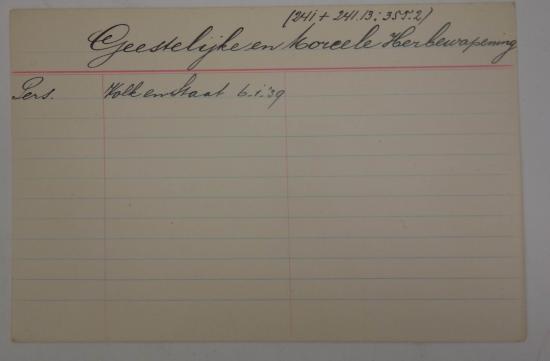 (241 + 241.13 : 355.2)
Geestelijke en Moreele Herbewapening
Pers. Volk en Staat 6.1.39